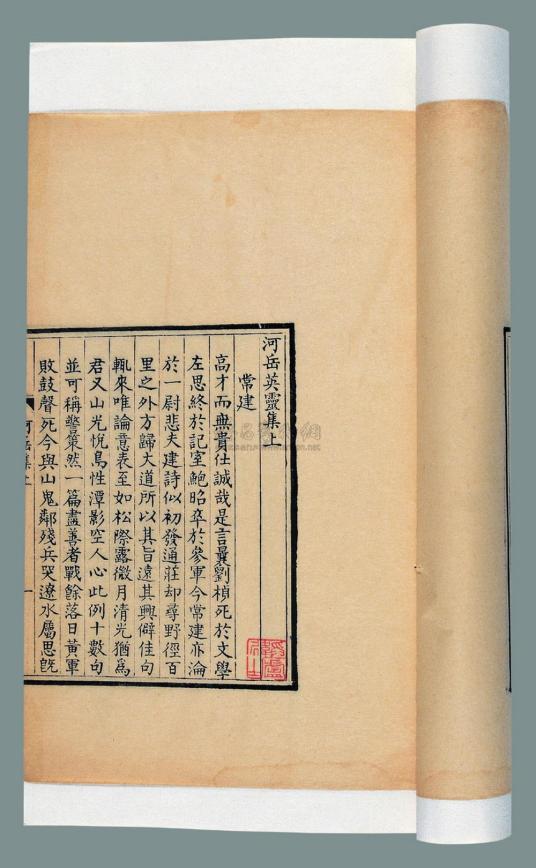 河岳英靈集上
常建
高才而無貴仕誠哉是言曩劉楨死於文學
左思終於記室鮑昭卒於參軍今常建亦淪
於一尉悲夫建詩似初發通莊却尋野徑百
里之外方歸大道所以其旨遠其興僻佳句
輒來唯論意表至如松際露微月清光猶爲
君又山光悅鳥性潭影空人心此例十數句
並可稱警策然一篇盡善者戰餘落日黃軍
敗鼓聲死今與山鬼鄰殘兵哭遼水屬思旣
河岳集上
一